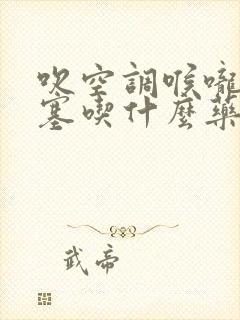 吹空調喉嚨
塞喫什麼藥
武帝